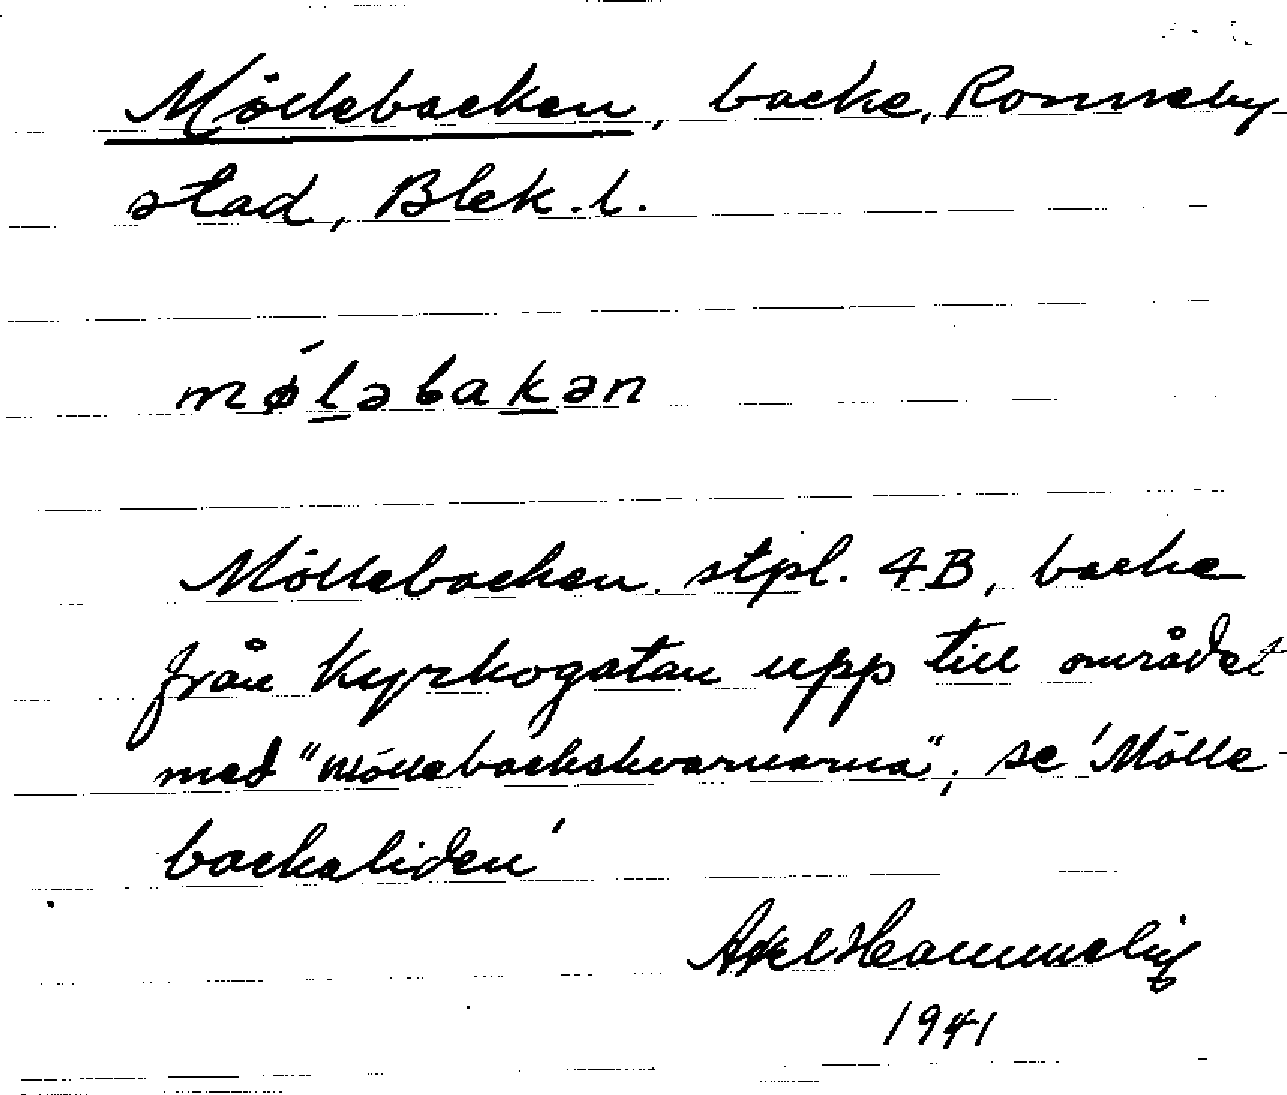 Möllebacken, backe, Ronneby
stad, Blek. l.
møĺəbakən
Möllebacken. stpl. 4B, backe
från Kyrkogatan upp till området
med "Möllebackskvarnarna", se 'Mölle-
backaliden'
Axel
1941